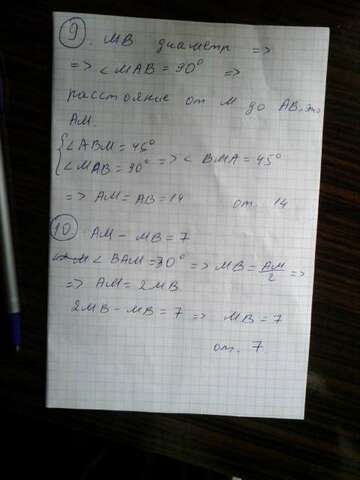 9. MB диаметр =>
=> ∠MAB = 90° =>
расстояние от M до AB, это
AM.
{∠ABM = 45°
∠MAB = 90° => ∠BMA = 45°
=> AM = AB = 14 от. 14
10. AM - MB = 7
∠BAM = 30° => MB = AM/2 =>
=> AM = 2MB
2MB - MB = 7 => MB = 7
от. 7